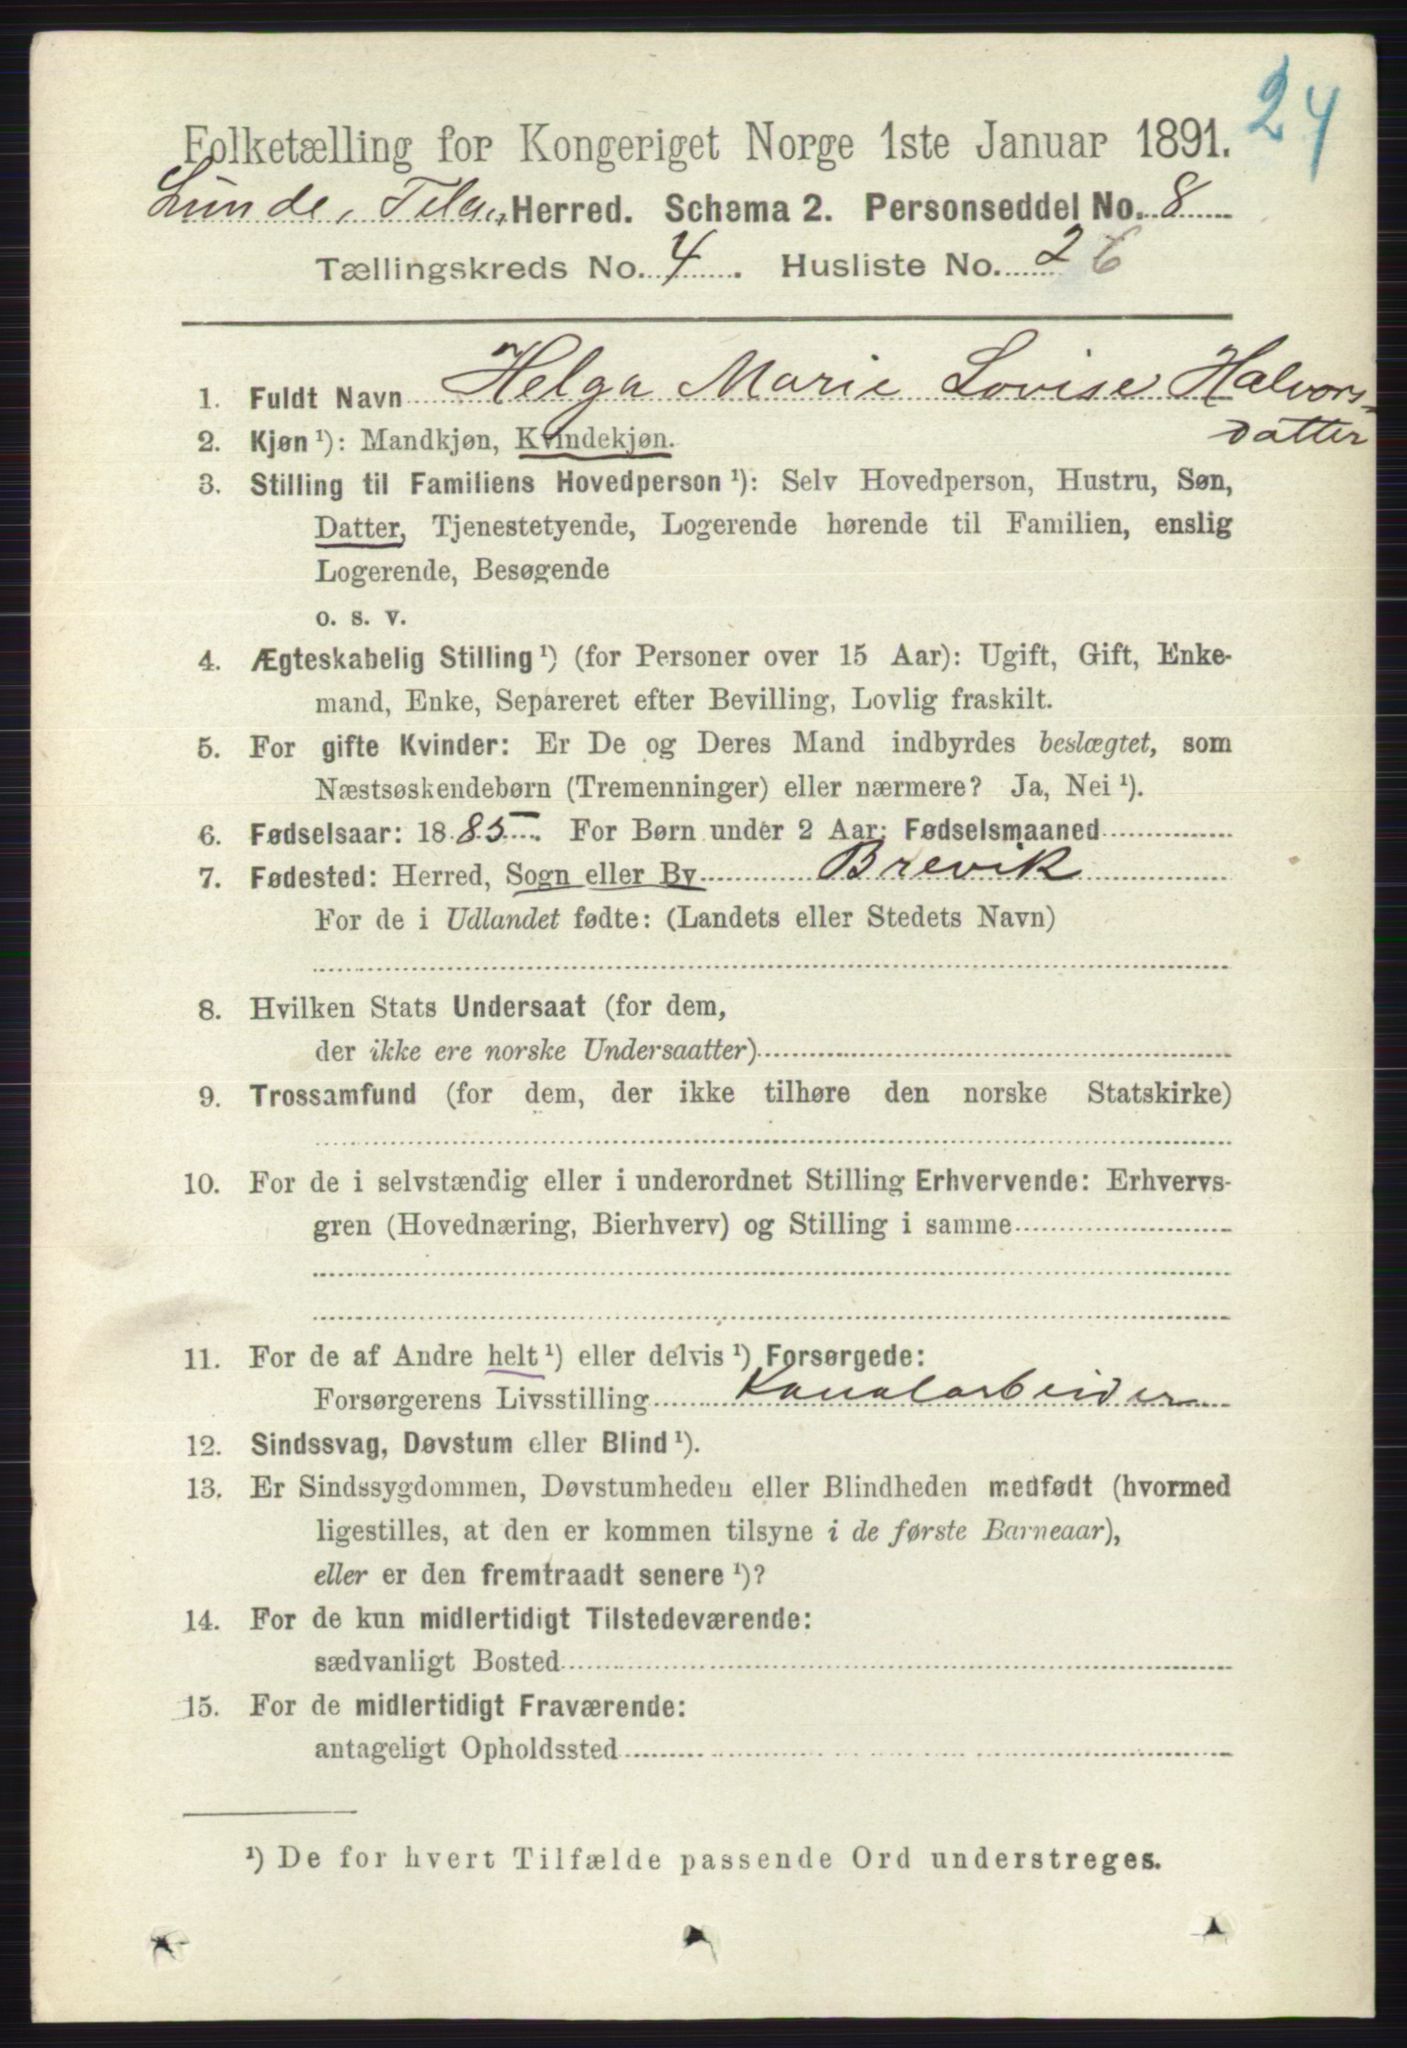 24
Folketælling for Kongeriget Norge 1ste Januar 1891.
Lunde, Telm. Herred. Schema 2. Personseddel No. 8
Tællingskreds No. 4. Husliste No. 26
1. Fuldt Navn Helga Marie Lovise Halvors-
datter
2. Kjøn ¹): Mandkjøn, Kvindekjøn.
3. Stilling til Familiens Hovedperson ¹): Selv Hovedperson, Hustru, Søn,
Datter, Tjenestetyende, Logerende hørende til Familien, enslig
Logerende, Besøgende
o. s. v.
4. Ægteskabelig Stilling ¹) (for Personer over 15 Aar): Ugift, Gift, Enke-
mand, Enke, Separeret efter Bevilling, Lovlig fraskilt.
5. For gifte Kvinder: Er De og Deres Mand indbyrdes beslægtet, som
Næstsøskendebørn (Tremenninger) eller nærmere? Ja, Nei ¹).
6. Fødselsaar: 1885. For Børn under 2 Aar: Fødselsmaaned
7. Fødested: Herred, Sogn eller By Brevik
For de i Udlandet fødte: (Landets eller Stedets Navn)
8. Hvilken Stats Undersaat (for dem,
der ikke ere norske Undersaatter)
9. Trossamfund (for dem, der ikke tilhøre den norske Statskirke)
10. For de i selvstændig eller i underordnet Stilling Erhvervende: Erhvervs-
gren (Hovednæring, Bierhverv) og Stilling i samme
11. For de af Andre helt ¹) eller delvis ¹) Forsørgede:
Forsørgerens Livsstilling Kanalarbeider
12. Sindssvag, Døvstum eller Blind ¹).
13. Er Sindssygdommen, Døvstumheden eller Blindheden medfødt (hvormed
ligestilles, at den er kommen tilsyne i de første Barneaar),
eller er den fremtraadt senere ¹)?
14. For de kun midlertidigt Tilstedeværende:
sædvanligt Bosted
15. For de midlertidigt Fraværende:
antageligt Opholdssted
¹) De for hvert Tilfælde passende Ord understreges.